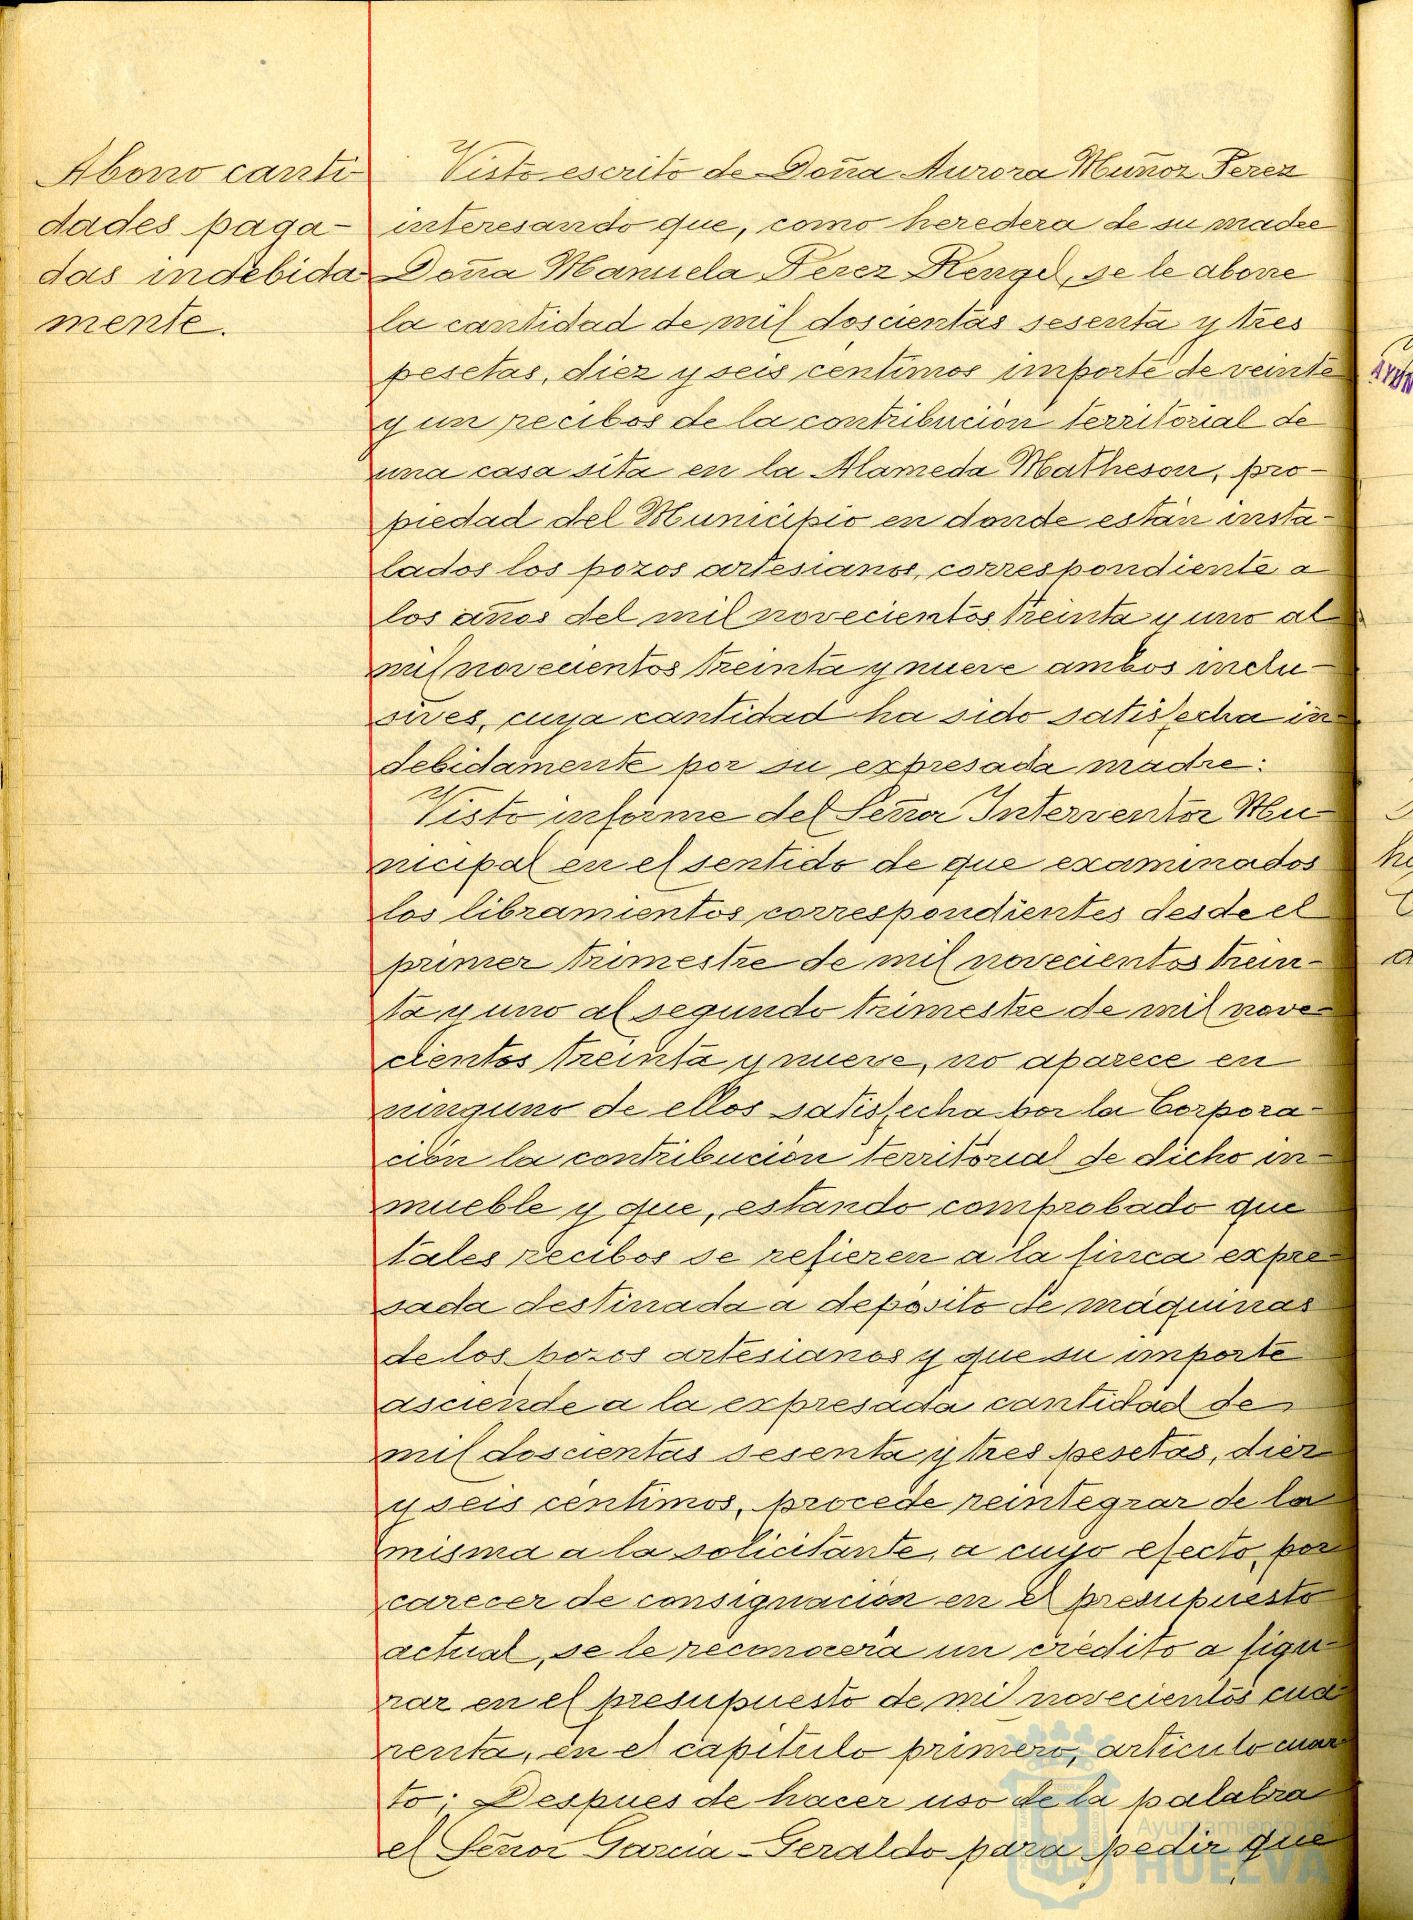 Abono canti-
dades paga-
das indebida-
mente.
Visto escrito de Doña Aurora Muñoz Perez
interesando que, como heredera de su madre
Doña Manuela Perez Rengel, se le abone
la cantidad de mil doscientas sesenta y tres
pesetas, diez y seis centimos importe de veinte
y un recibos de la contribución territorial de
una casa sita en la Alameda Matheson, pro-
piedad del Municipio en donde están insta-
lados los pozos artesianos, correspondiente a
los años del mil novecientos treinta y uno al
mil novecientos treinta y nueve ambos inclu-
sives, cuya cantidad ha sido satisfecha in-
debidamente por su expresada madre:
Visto informe del Señor Interventor Mu-
nicipal en el sentido de que examinados
los libramientos correspondientes desde el
primer trimestre de mil novecientos trein-
ta y uno al segundo trimestre de mil nove-
cientos treinta y nueve, no aparece en
ninguno de ellos satisfecha por la Corpora-
ción la contribución territorial de dicho in-
mueble y que, estando comprobado que
tales recibos se refieren a la finca expre-
sada destinada a depósito de máquinas
de los pozos artesianos y que su importe
asciende a la expresada cantidad de
mil doscientas sesenta y tres pesetas, diez
y seis céntimos, procede reintegrar de la
misma a la solicitante, a cuyo efecto, por
carecer de consignación en el presupuesto
actual, se le reconocerá un crédito a figu-
rar en el presupuesto de mil novecientos cua-
renta, en el capítulo primero, articulo cuar-
to; Despues de hacer uso de la palabra
el Señor Garcia-Geraldo para pedir que
Ayuntamiento de
HUELVA